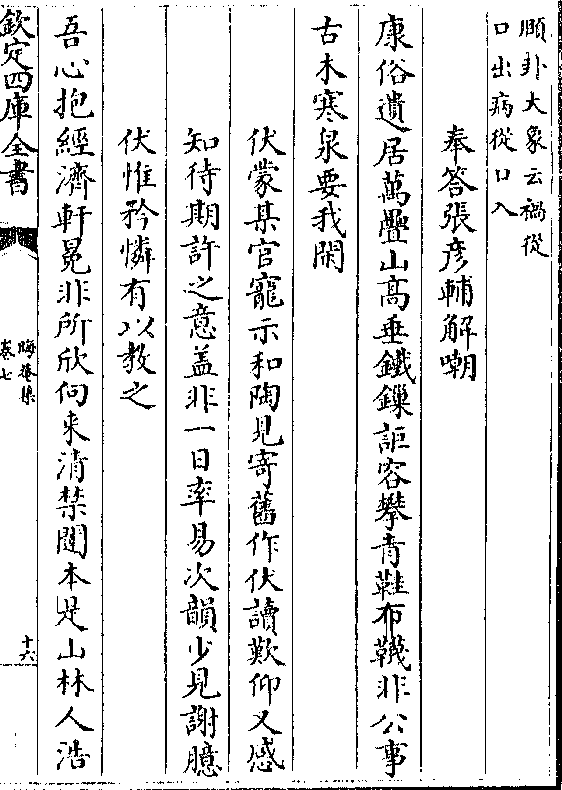 頤卦大象云禍從
口出病從口入
奉答張彦輔解嘲
康俗遺居萬疊山高垂鐵鏁詎容攀青鞋布韈非公事
古木寒泉要我閑
伏蒙某官寵示和陶見寄舊作伏讀歎仰又感
知待期許之意蓋非一日率易次韻少見謝臆
伏惟矜憐有以教之
吾心抱經濟軒冕非所欣向來清禁闥本是山林人浩
欽定四庫全書
晦菴集
卷七
十六